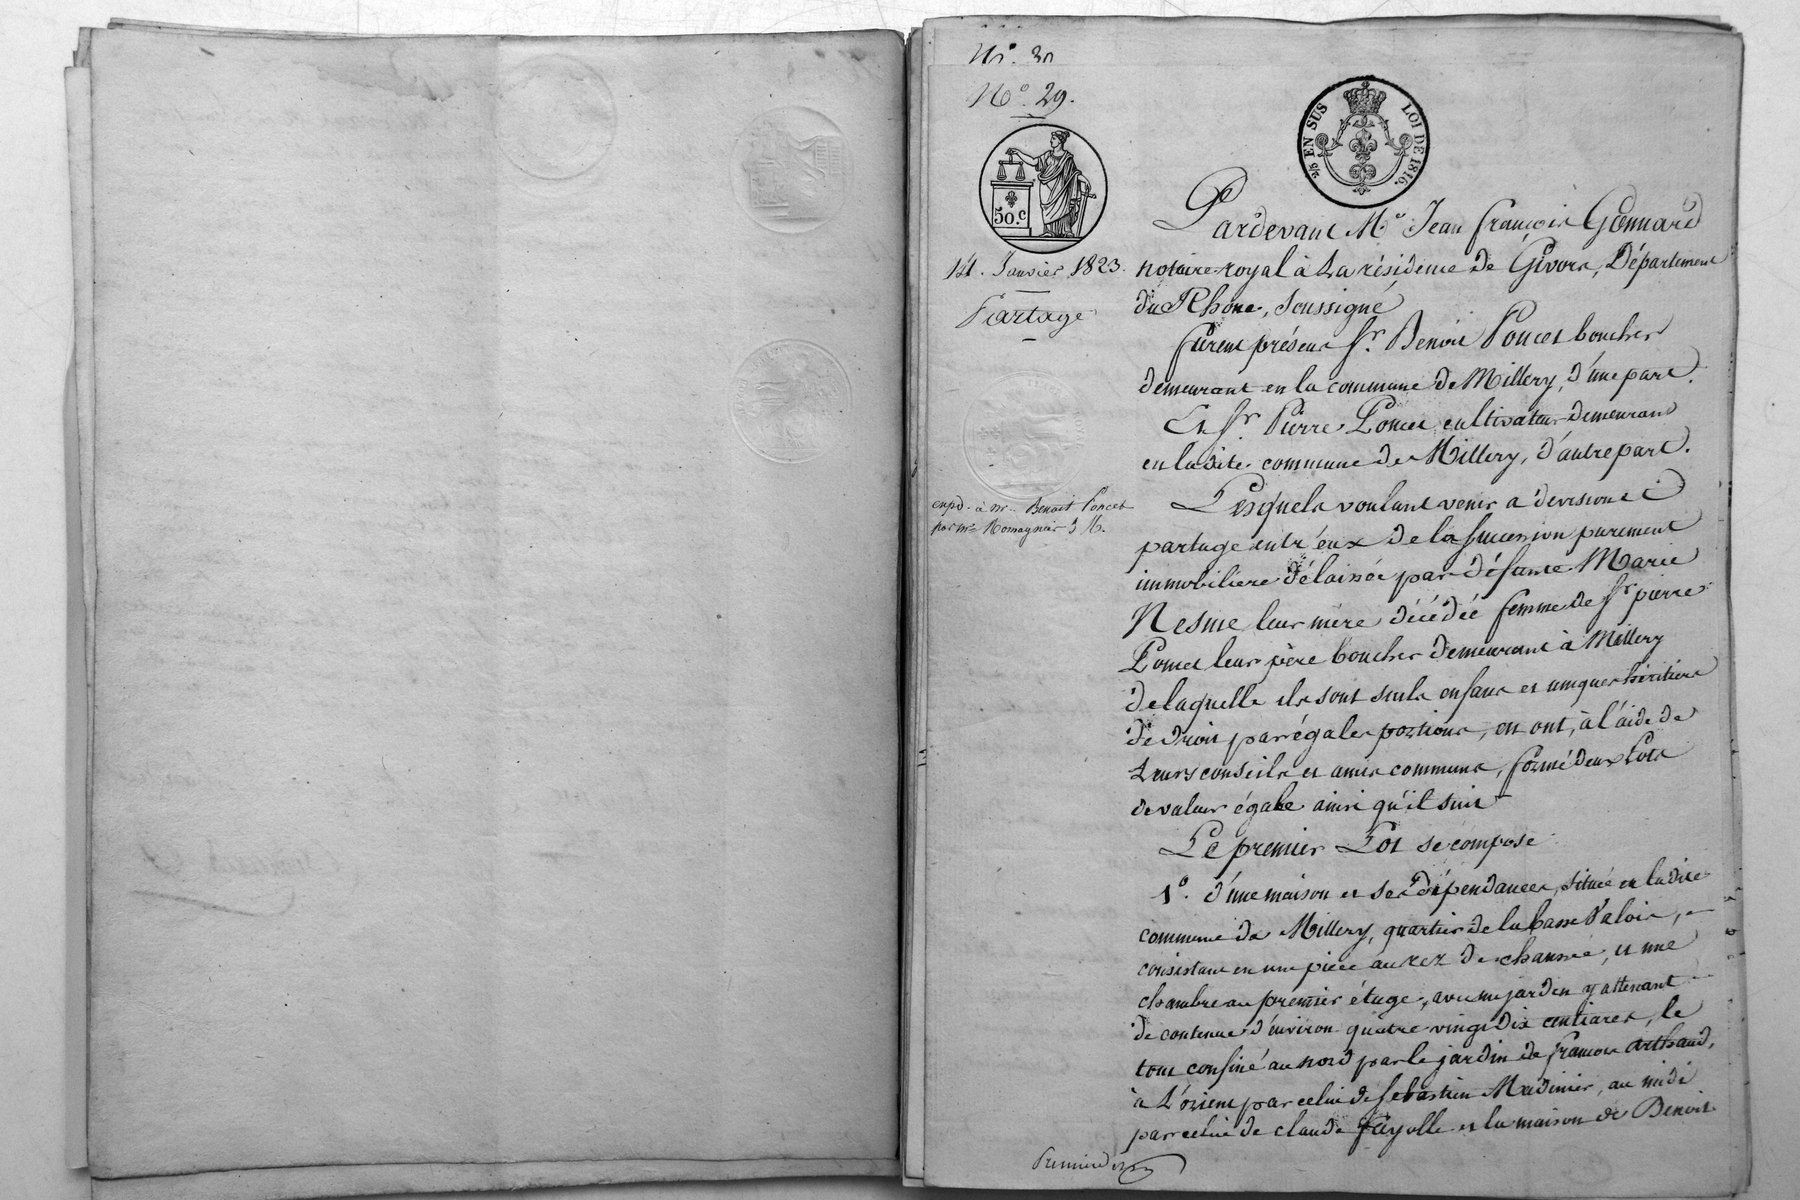 N°. 30
N°. 29.
2/5 EN SUS LOI DE 1816.
50.c
14. Janvier 1823.
Partage
expd. à mr. Benoit Poncet
par mr.
Pardevant Me. Jean françois Gonnard
notaire royal à La résidence de Givors, Département
du Rhone, soussigné
furent présens sr. Benoit Poncet boucher
demeurant en la commune de Millery, d'une part.
Et sr. Pierre Poncet cultivateur demeurant
en ladite commune de Millery, d'autre part.
Lesquels voulant venir a division et
partage entr'eux de la succession purement
immobiliere délaissée par défunte Marie
Nesme leur mére décédée femme de sr. pierre
Poncet leur père boucher demeurant à Millery
de laquelle ils sont seuls enfans et uniques héritiers
de droit par égales portions, en ont, à l'aide de
Leurs conseils et amis communs, formé deux Lots
de valeur égale ainsi qu'il suit
Le premier Lot se compose
1°. d'une maison et ses dépendances, située en ladite
commune de Millery, quartier de la basse Valois,
consistant en une piéce au rez de chaussée, et une
chambre au premier étage, avec un jardin y attenant
de contenue d'environ quatre vingt dix centiares, le
tout confiné au nord par le jardin de françois Arthaud,
à L'orient par celui de sebastien Madinier, au midi
par celui de claude fayolle et la maison de Benoit
Premier